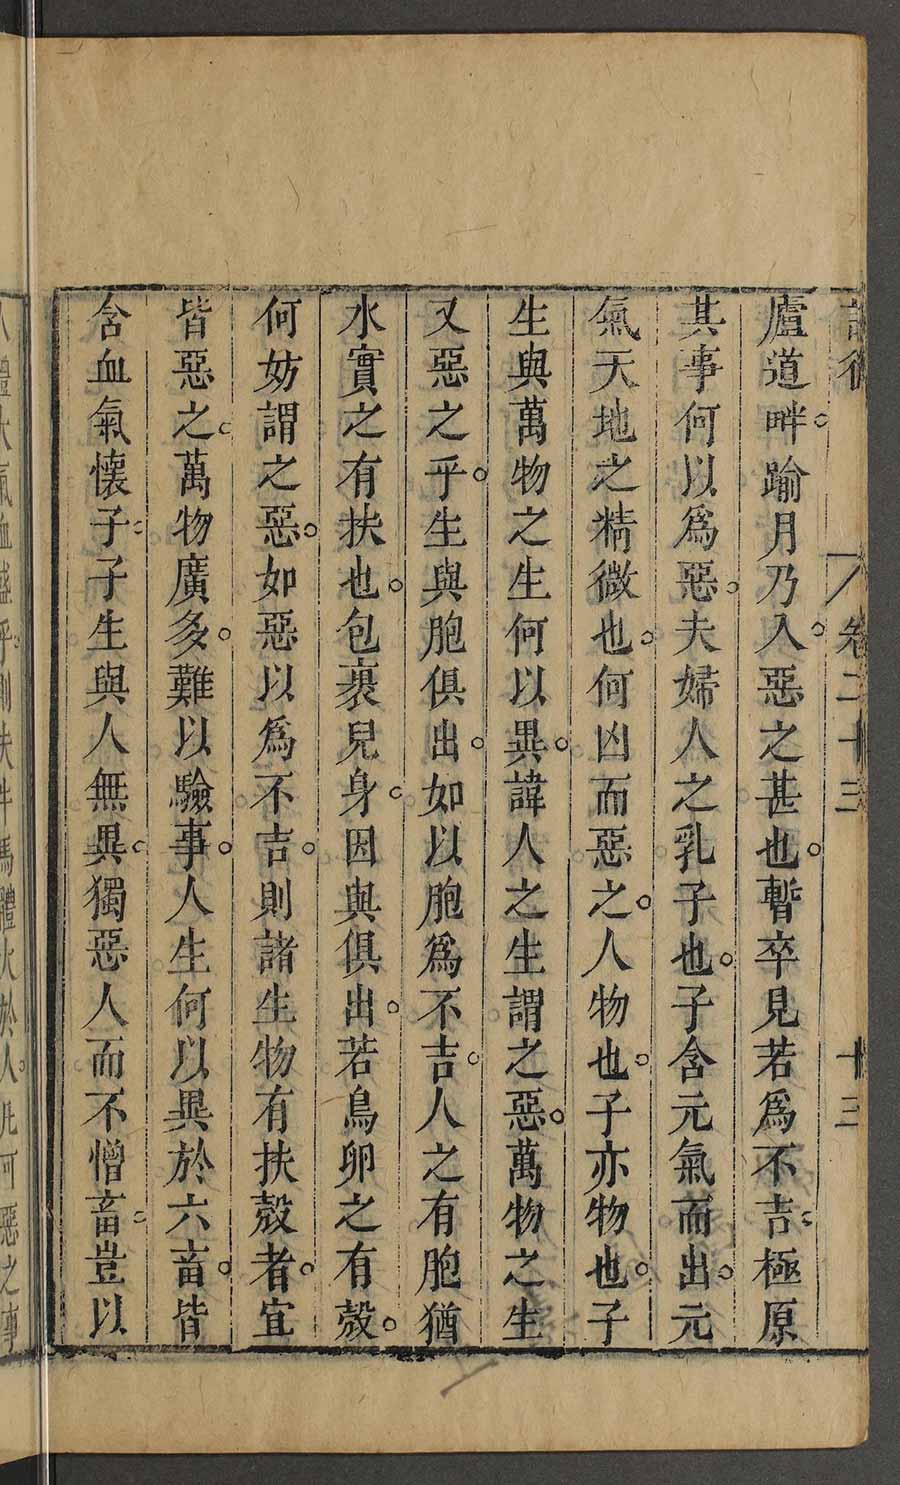 卷二十三 十三
廬道畔。踰月乃入。惡之甚也。暫卒見若爲不吉。極原
其事何以爲惡。夫婦人之乳子也。子含元氣而出。元
氣天地之精微也。何凶而惡之。人物也。子亦物也。子
生與萬物之生何以異。諱人之生謂之惡。萬物之生
又惡之乎。生與胞俱出。如以胞爲不吉。人之有胞猶
木實之有扶也。包裹兒身。因與俱出。若鳥卵之有殼。
何妨謂之惡。如惡以爲不吉。則諸生物有扶殼者。宜
皆惡之。萬物廣多。難以驗事。人生何以異於六畜。皆
含血氣懷子。子生與人無異。獨惡人而不憎畜。豈以